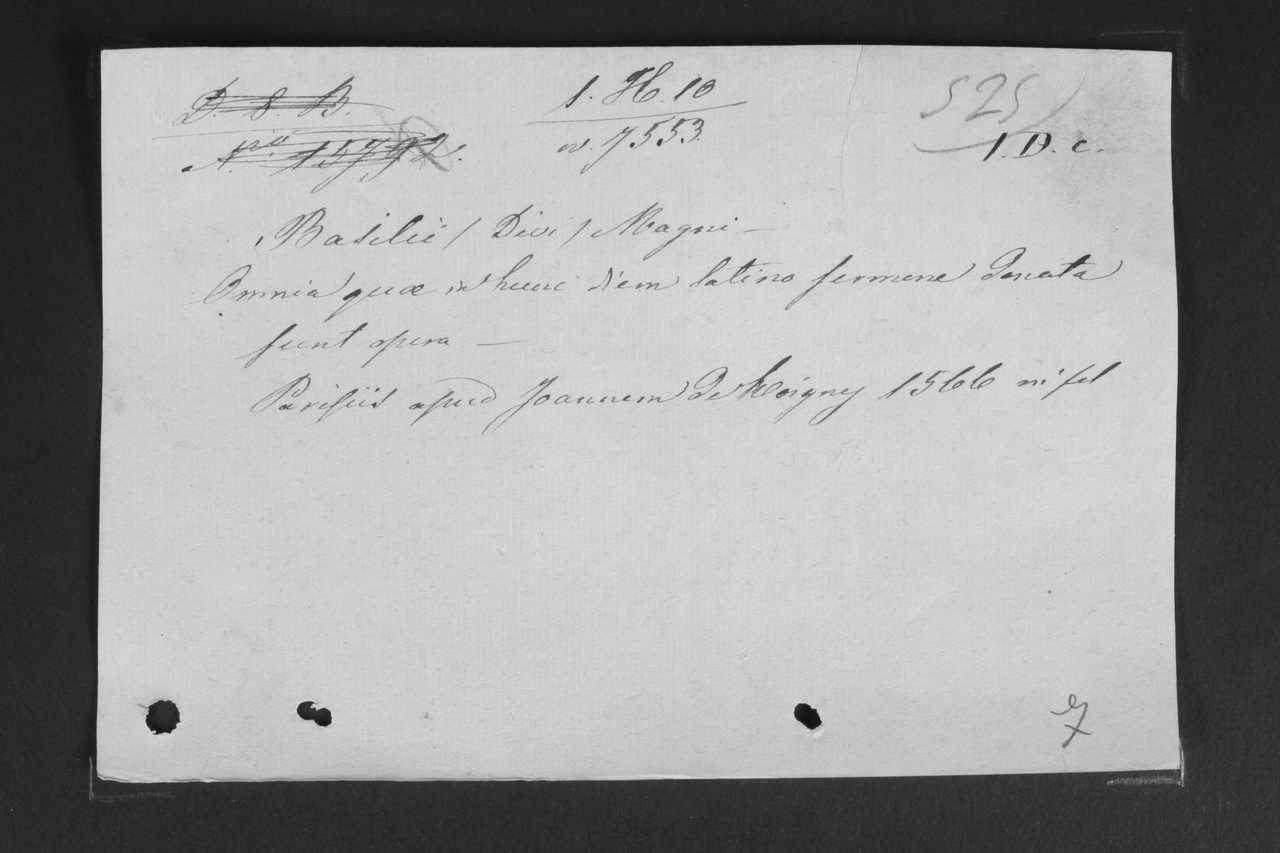 D. 8. B.
1. H. 10
525
N.ro 15791.
n. 7553.
1. D. c.
Basilii / Divi / Magni —
Omnia quæ in hunc diem latino sermone donata
sunt opera —
Parisiis apud Joannem De Roigny 1566 in fol
7